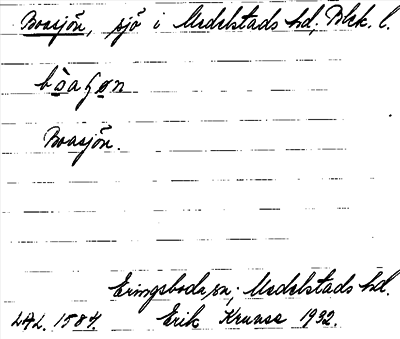 Boasjön, sjö i Medelstads hd, Blek. l.
bòaʃøn
Boasjön.
Eringsboda sn; Medelstads hd.
LAL. 1584. Erik Kruuse 1932.